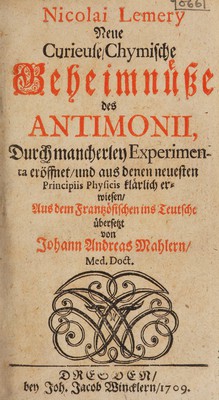 10661
Nicolai Lemery
Neue
Curieuse Chymische
Geheimnüße
des
ANTIMONII,
Durch mancherley Experimen-
ta eröffnet/und aus denen neuesten
Principiis Physicis klärlich er-
wiesen/
Aus dem Frantzösischen ins Teutsche
übersetzt
von
Johann Andreas Mahlern/
Med. Doct.
DRESDEN/
bey Joh. Jacob Wincklern/1709.